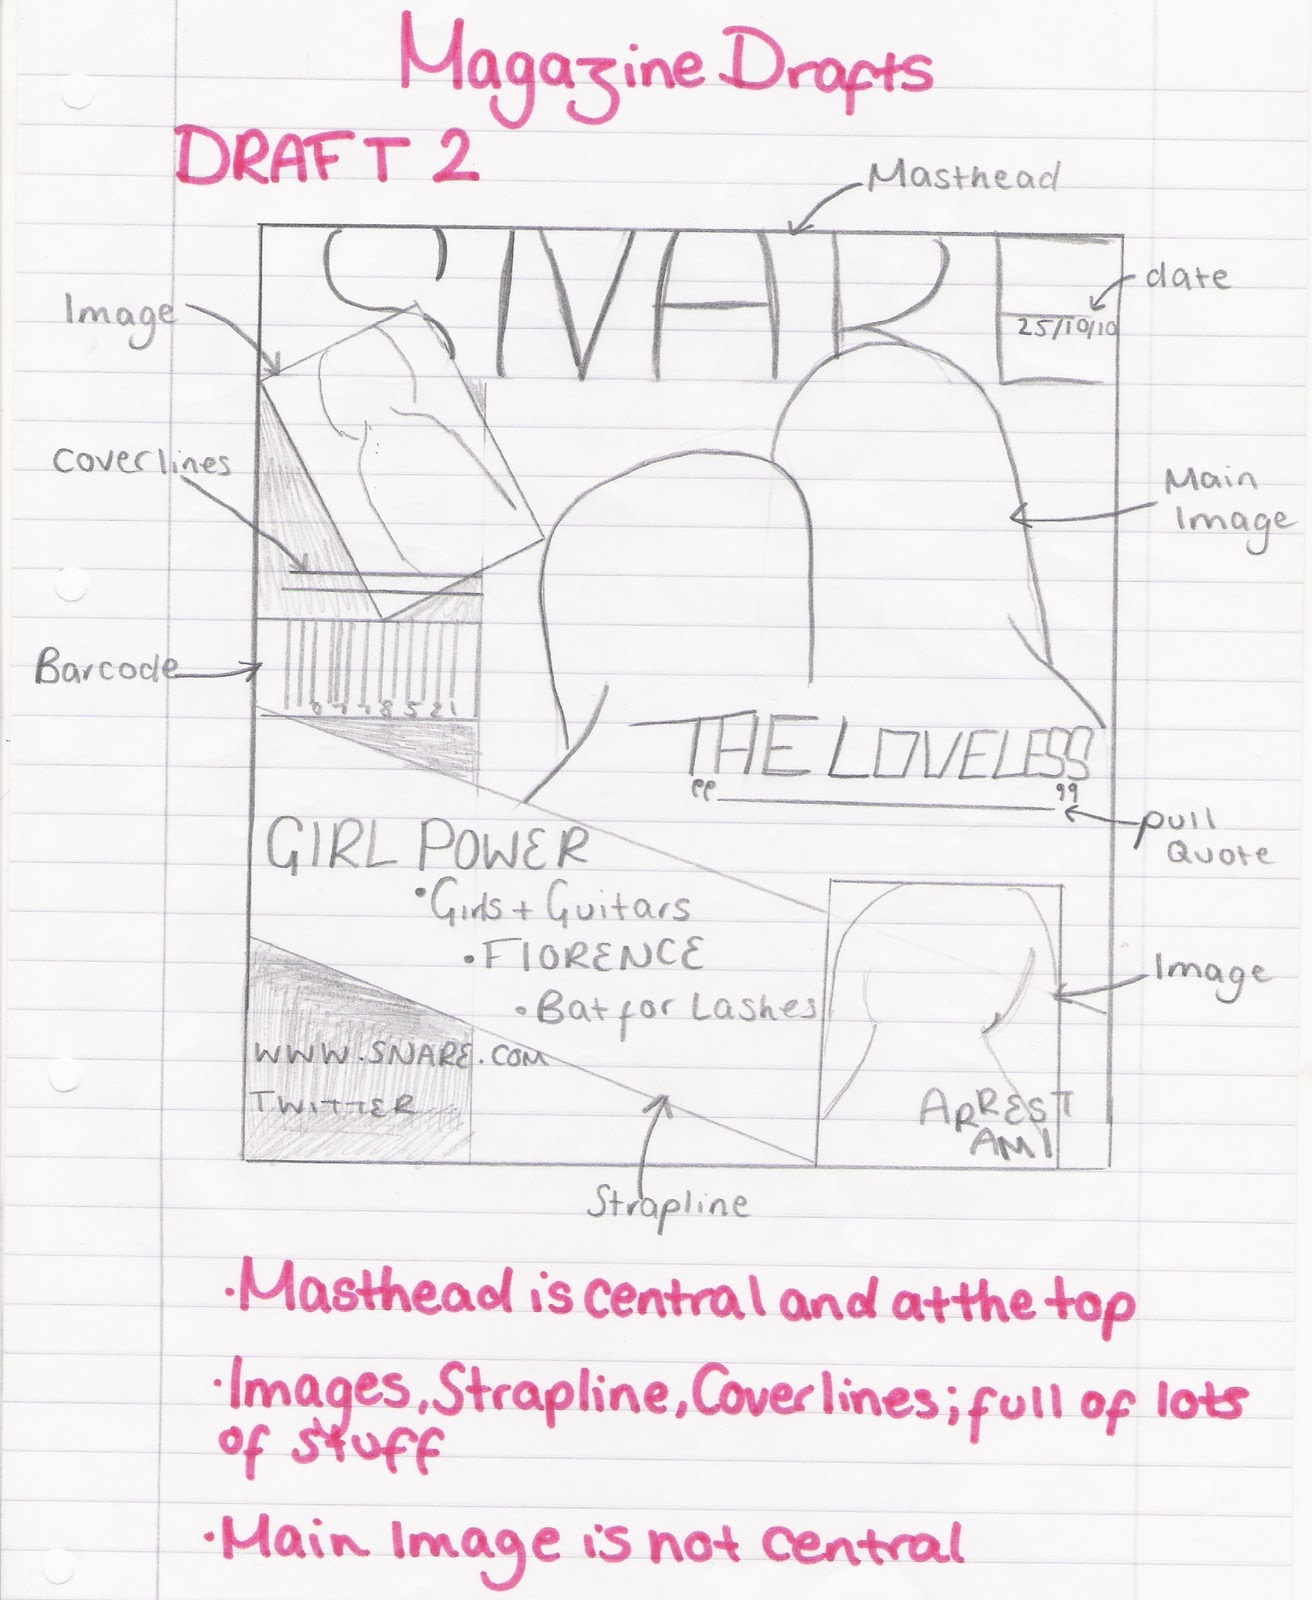 Magazine Drafts
DRAFT 2
Masthead
SNARE
date
25/10/10
Image
Coverlines
Main
Image
Barcode
THE LOVELESS
" "
pull
Quote
GIRL POWER
• Girls + Guitars
• FLORENCE
• Bat for Lashes
Image
WWW.SNARE.COM
TWITTER
ARREST
AMI
Strapline
• Masthead is central and at the top
• Images, Strapline, Coverlines; full of lots
of stuff
• Main Image is not central